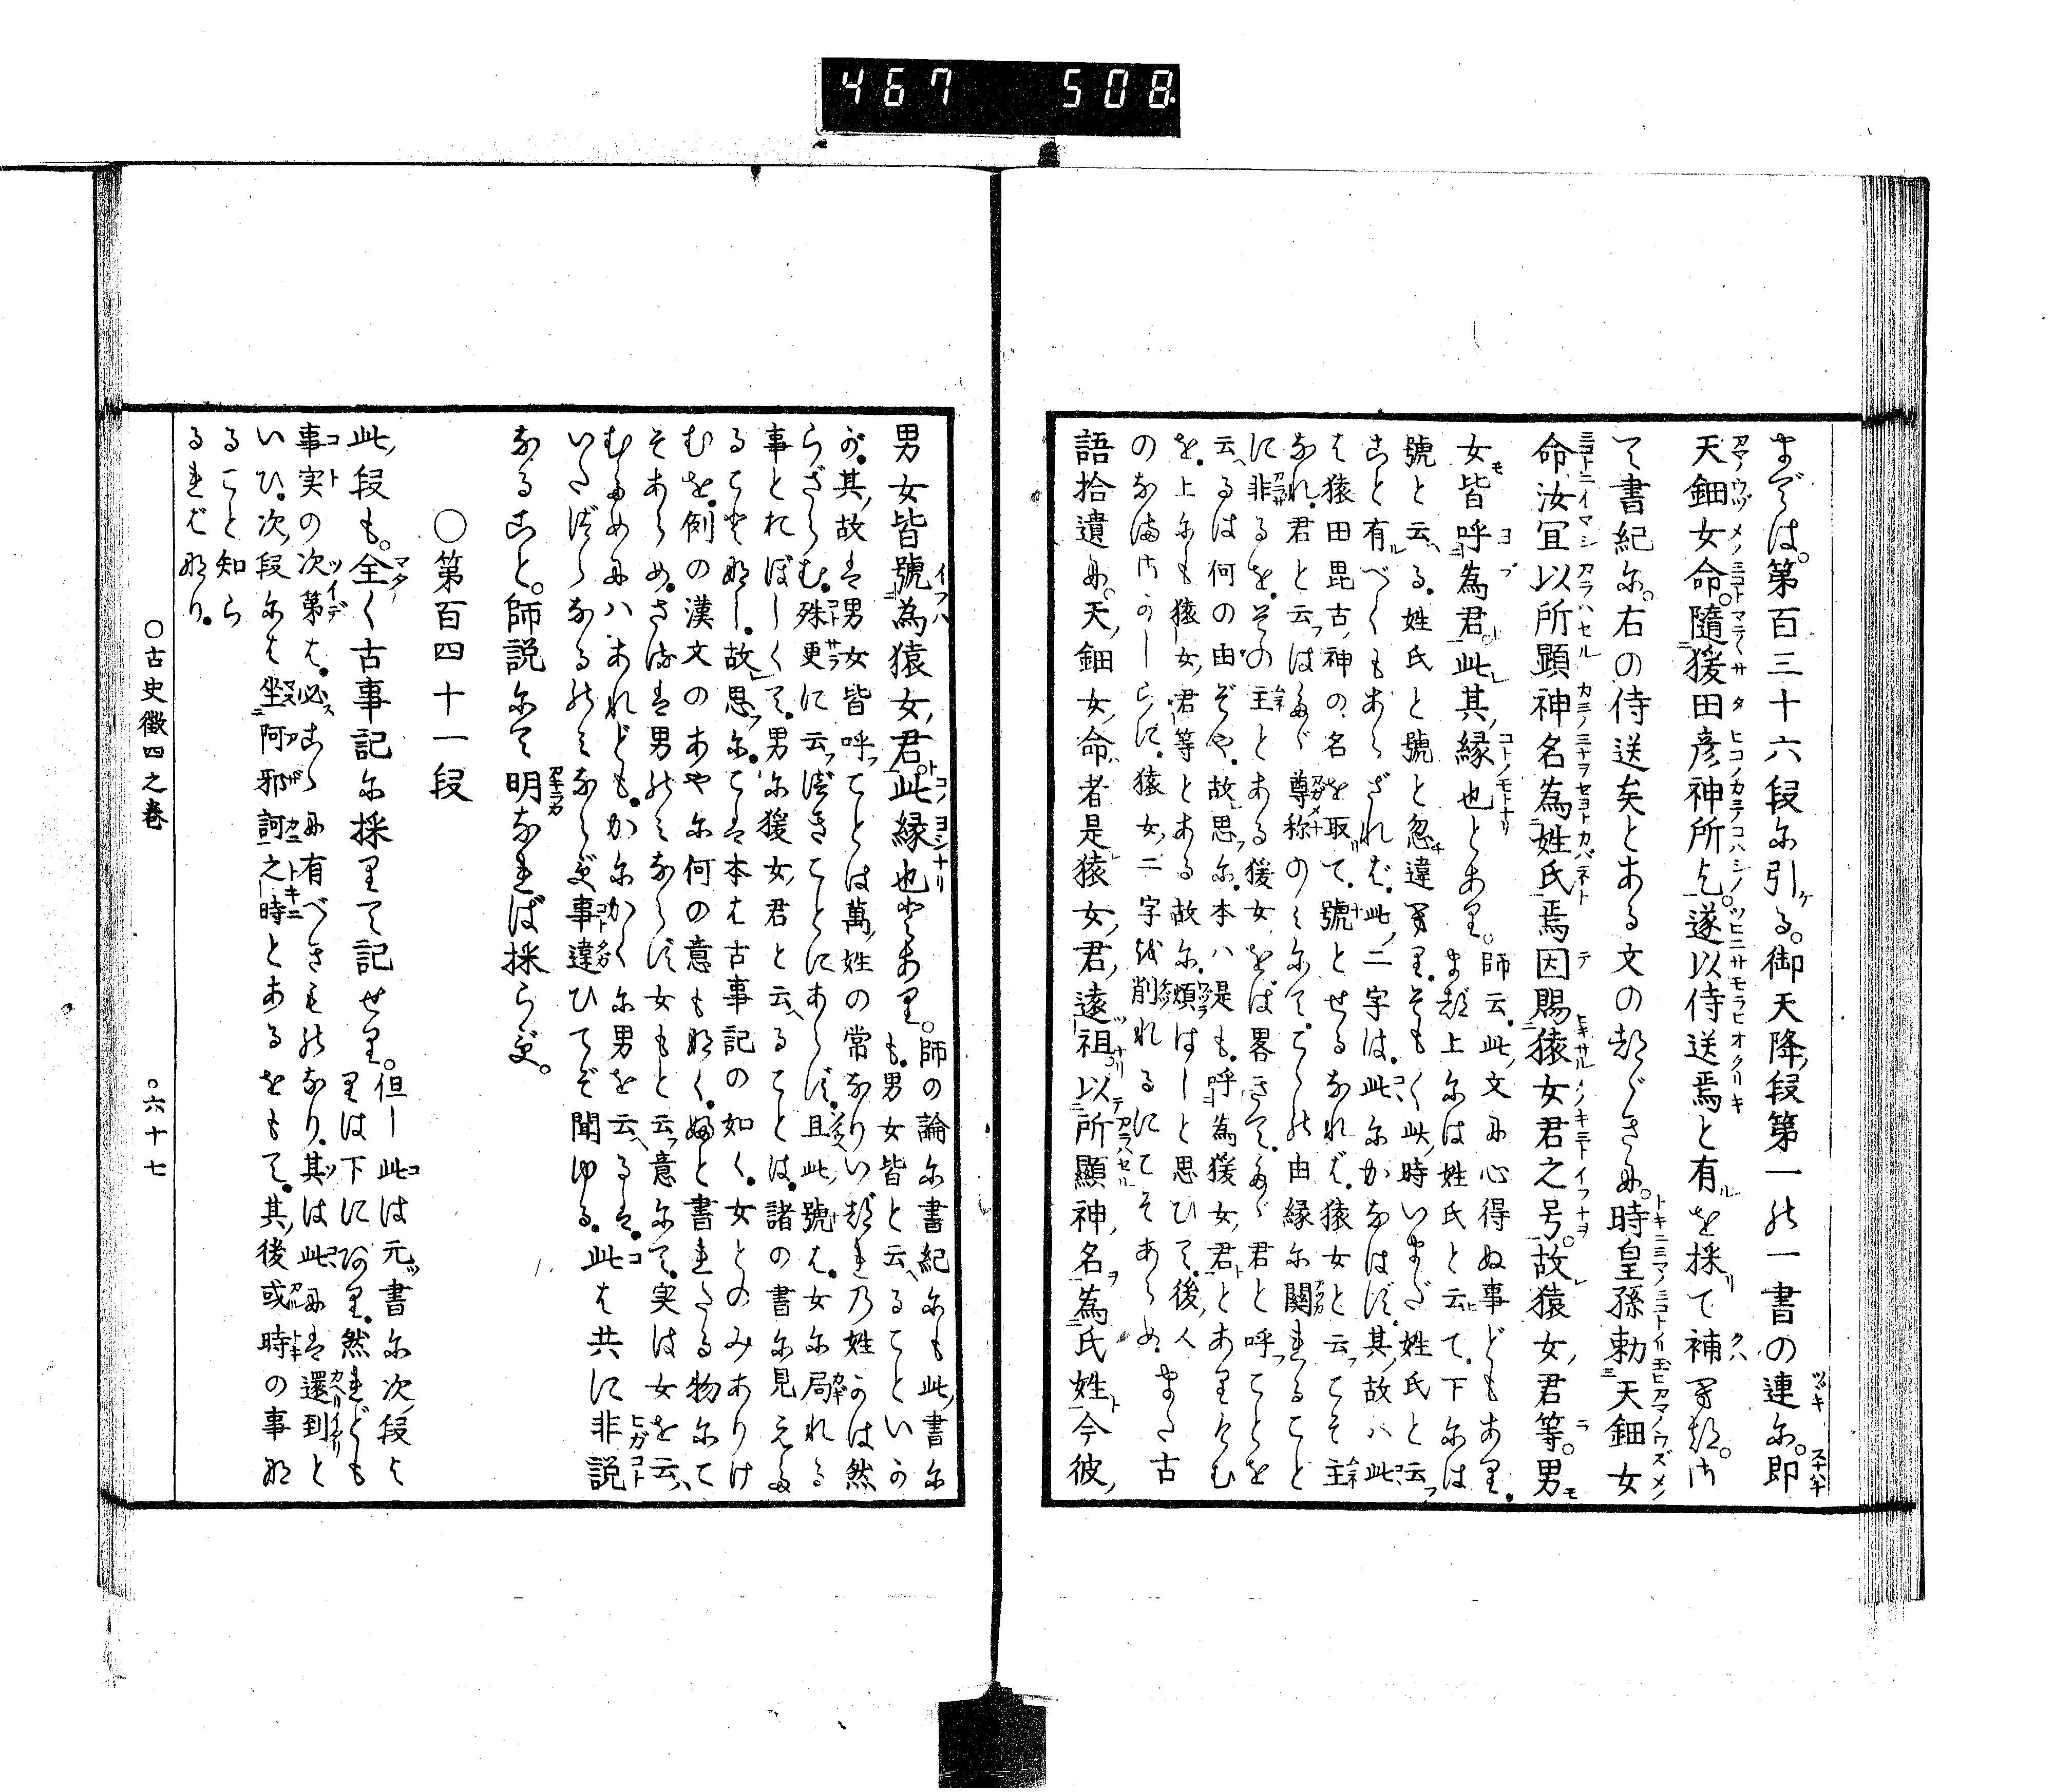 467 508
までは。第百三十六段に引る。御天降段第一の一書の連に。即
天鈿女命。隨猨田彦神所乞。遂以侍送焉と有を採て補ひつ。さ
て書紀に。右の侍送矣とある文のつゞきに。時皇孫勅天鈿女
命汝宜以所顯神名為姓氏焉因賜猿女君之号。故猿女君等。男
女皆呼為君。此其縁也とあり。師云。此文に心得ぬ事どもあり。
まづ上には姓氏と云て。下には
號と云る。姓氏と號と忽違へり。そもそも此時いまだ姓氏と云
こと有べくもあらざれば。此二字は。此にかなはず。其故ハ此
は猿田毘古神の名を取て。號とせるなれば。猿女と云こそ主
なれ。君と云はたゞ尊称のみにて。こゝの由縁に關れること
に非るを。その主とある猨女をば畧きて。たゞ君と呼ことを
云るは何の由ぞや。故思に。本ハ是も。呼為猨女君とありけむ
を。上にも猿女君等とある故に。煩はしと思ひて。後人
のなまさかしらに。猿女二字を削れるにてそあらめ。また古
語拾遺に。天鈿女命者是猿女君遠祖以所顯神名為氏姓今彼
男女皆號為猿女君。此縁也とあり。師の論に書紀にも此書に
も。男女皆と云ることいか
が。其故は男女皆呼ことは萬姓の常なりいづれの姓かは然
らざらむ。殊更に云べきことにあらず。且此號は。女に局れる
事とおぼしくて。男に猨女君と云ることは。諸の書に見えた
ることなし。故思に。こは本は古事記の如く。女とのみありけ
むを。例の漢文のあやに何の意もなく。ふと書れたる物にて
そあらめ。さるは男のみならず女もと云意にて。実は女を云
むためにハあれども。かにかくに男を云るは。此は共に非説
いたづらなるのみならず事違ひてぞ聞ゆる。
なること。師説にて明なれば採らず。
○第百四十一段
此段も。全く古事記に採りて記せり。但し此は元書に次段よ
りは下にあり。然れども
事実の次第は。必こゝに有べきものなり。其は此には還到と
いひ。次段には坐阿邪訶之時とあるをもて。其後或時の事な
ること知ら
るればなり。
○古史徴四之巻
○六十七